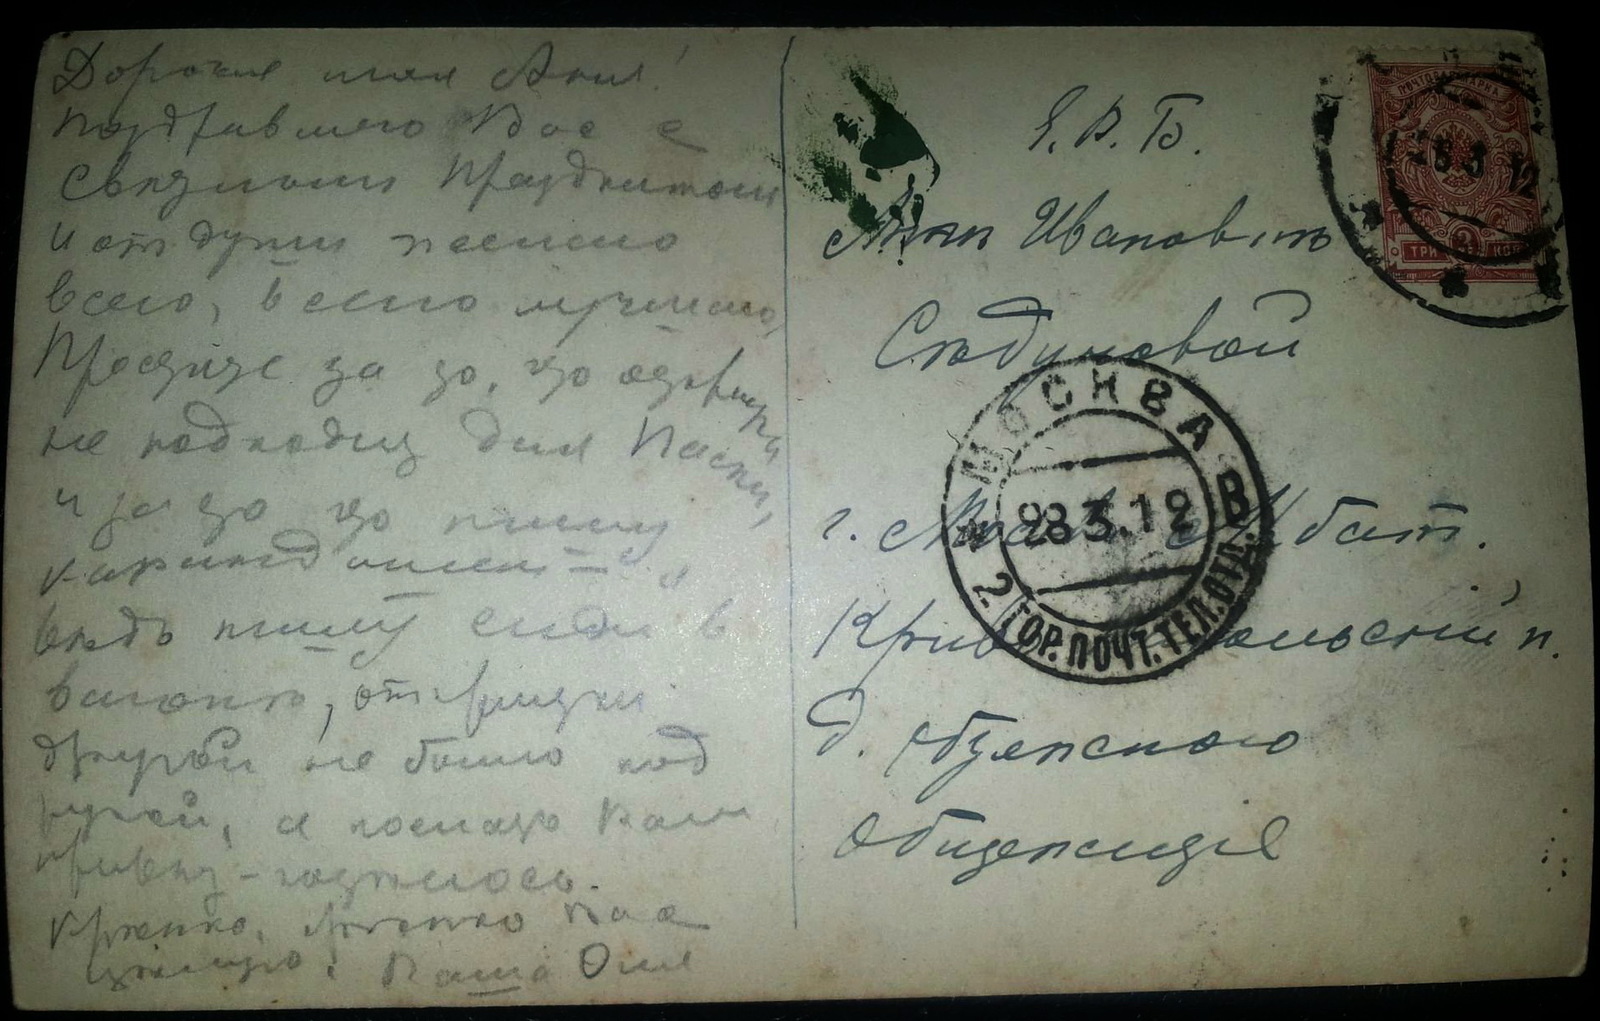 Дорогая моя Аня!
Поздравляю Вас с
Светлым Праздником
и от души желаю
всего, всего лучшаго,
Простите за то, что открытка
не подходит для Пасхи,
и за то что пишу
карандашемъ,
ведь пишу сидя в
вагоне, открытки
другой не было под
рукой, а послать Вам
привет - хотелось.
Крепко, крепко Вас
целую. Ваша Оля
Е. В. Б.
Анне Ивановне
г. Москва Арбат.
д. 
Общежитіе
ПОЧТОВАЯ МАРКА
ТРИ 3 КОП
28.3.12
МОСКВА
28.3.12
2. ГОР. ПОЧТ. ТЕЛ. ОТД.